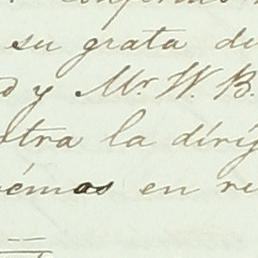 su grata de
y Mr. W. B.
otra la dirij
émos en re